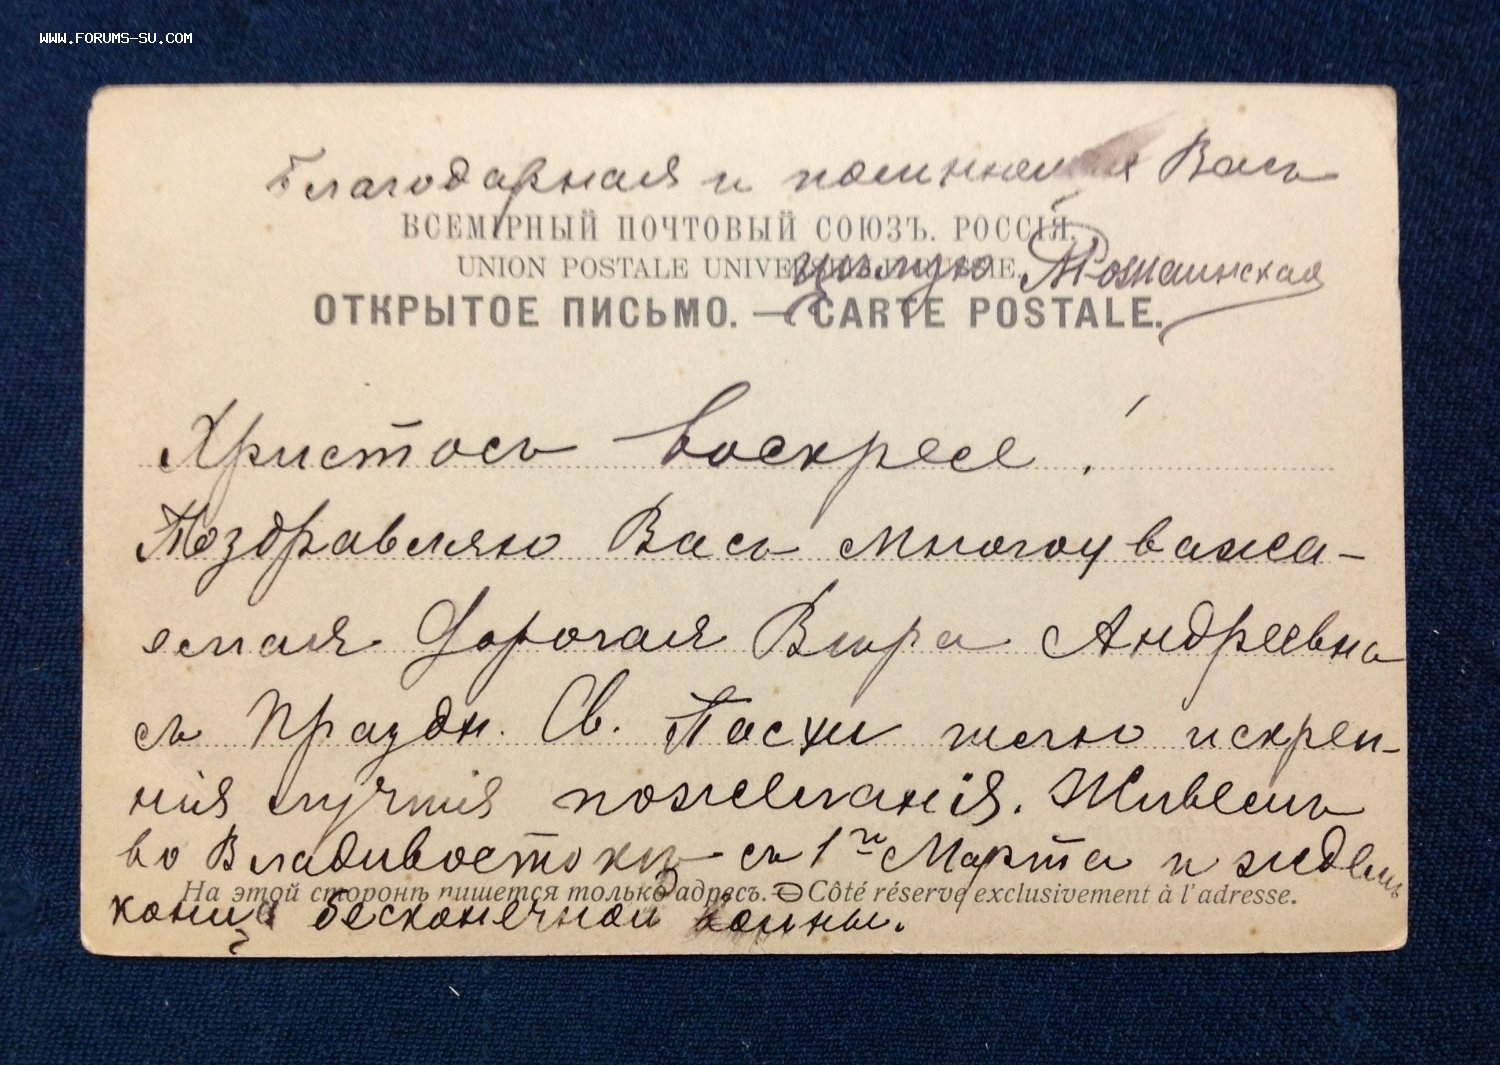 WWW.FORUMS-SU.COM
Благодарная и помнящая Васъ
ВСЕМІРНЫЙ ПОЧТОВЫЙ СОЮЗЪ. РОССІЯ.
UNION POSTALE UNIVERSELLE. RUSSIE.
цѣлую
ОТКРЫТОЕ ПИСЬМО. — CARTE POSTALE.
Христосъ Воскресе!
Поздравляю Васъ многоуважа-
емая дорогая Вѣра Андреевна
съ Праздн. Св. Пасхи шлю искрен-
нія лучшія пожеланія. Живемъ
во Владивостокѣ съ 1го Марта и ждемъ
На этой сторонѣ пишется только адресъ. — Côté réservé exclusivement à l'adresse.
конца безконечной войны.